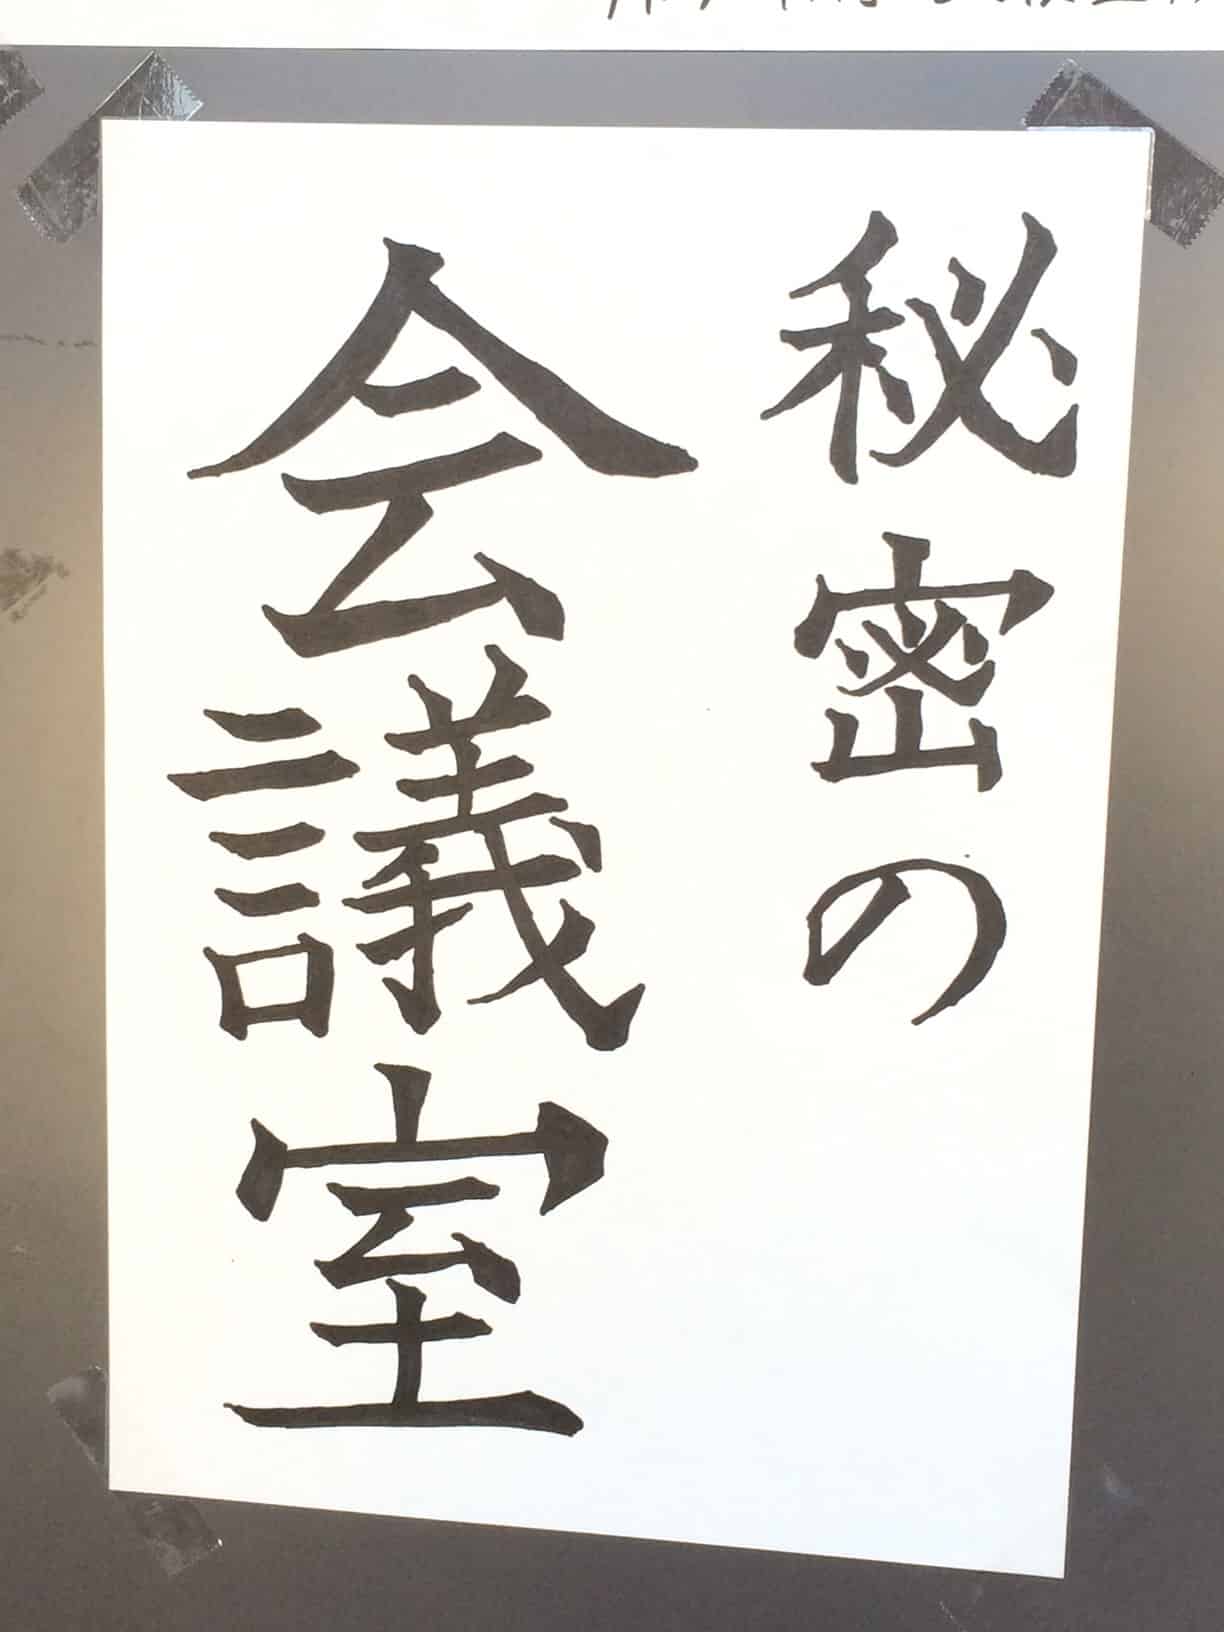 秘密の
会議室